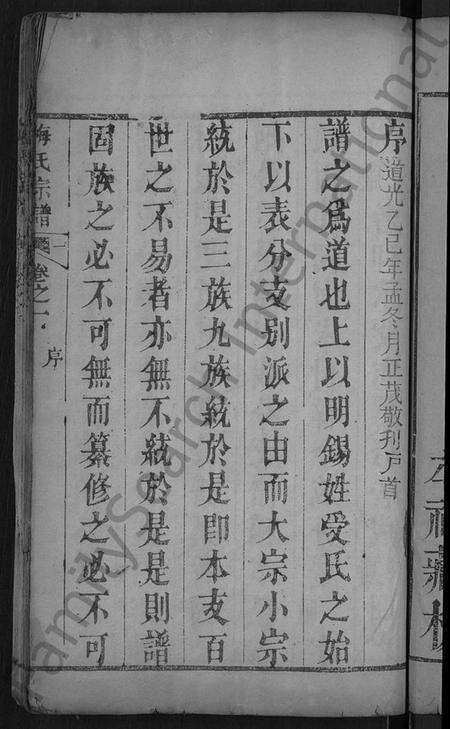 序道光乙巳年孟冬月正茂敬刊戶首
譜之爲道也上以明錫姓受氏之始
下以表分支別派之由而大宗小宗
統於是三族九族統於是即本支百
世之不易者亦無不統於是是則譜
固族之必不可無而纂修之必不可
梅氏宗譜 卷之一 序
FamilySearch International